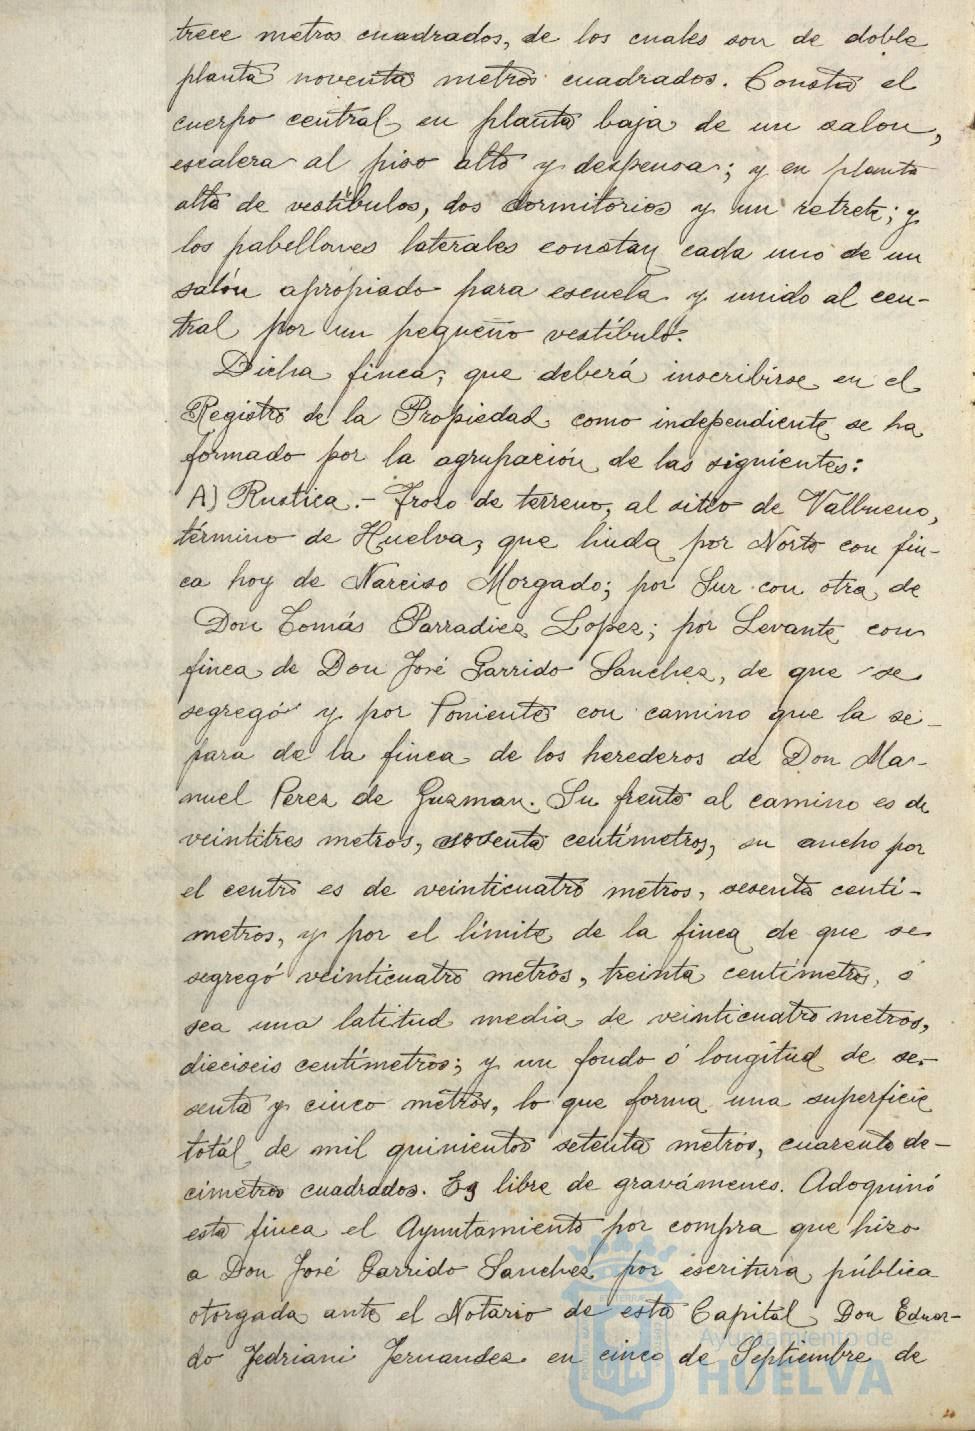 trece metros cuadrados, de los cuales son de doble
planta noventa metros cuadrados. Consta el
cuerpo central en planta baja de un salon,
escalera al piso alto y despensa; y en planta
alta de vestíbulos, dos dormitorios y un retrete; y
los pabellones laterales constan cada uno de un
salón apropiado para escuela y unido al cen-
tral por un pequeño vestíbulo.
Dicha finca, que deberá inscribirse en el
Registro de la Propiedad como independiente se ha
formado por la agrupación de las siguientes:
A) Rustica.- Trozo de terreno, al sitio de Valbueno,
término de Huelva, que linda por Norte con fin-
ca hoy de Narciso Morgado; por Sur con otra de
Don Tomás Parradiez Lopez; por Levante con
finca de Don José Garrido Sanchez, de que se
segregó y por Poniente con camino que la se-
para de la finca de los herederos de Don Ma-
nuel Perez de Guzman. Su frente al camino es de
veintitres metros, sesenta centímetros, su ancho por
el centro es de veinticuatro metros, sesenta centí-
metros, y por el límite de la finca de que se
segregó veinticuatro metros, treinta centímetros, ó
sea una latitud media de veinticuatro metros,
dieciseis centímetros; y un fondo ó longitud de se-
senta y cinco metros, lo que forma una superficie
totál de mil quinientos setenta metros, cuarenta de-
címetros cuadrados. Es libre de gravámenes. Adoquinó
esta finca el Ayuntamiento por compra que hizo
a Don José Garrido Sanchez por escritura pública
otorgada ante el Notario de esta Capital Don Eduar-
do Fedriani Fernandez en cinco de Septiembre de
Ayuntamiento de
HUELVA